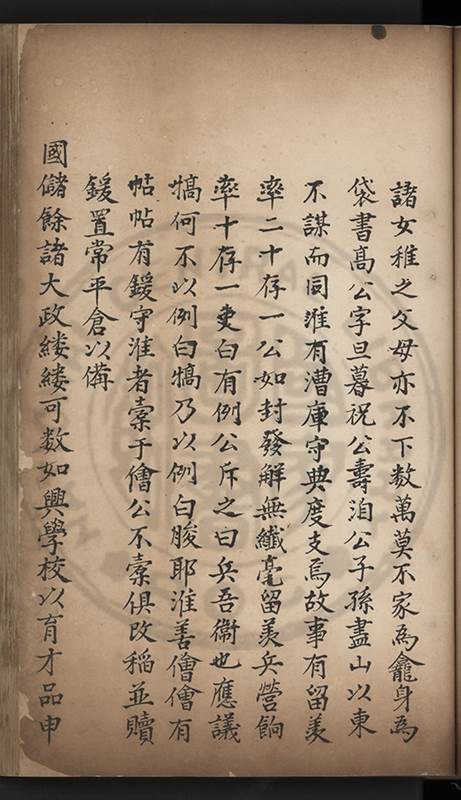 諸女稚之父母亦不下数萬莫不家為龕身為
袋書髙公字旦暮祝公壽洎公子孫盡山以東
不謀而同淮有漕庫守典度支焉故事有留羨
率二十存一公如封發解無纖毫留羨兵營餉
率十存一吏白有例公斥之曰兵吾衛也應議
犒何不以例白犒乃以例白朘耶淮善儈儈有
帖帖有鍰守淮者橐于儈公不橐俱改稲並贖
鍰置常平倉以備
國儲餘諸大政縷縷可数如興學校以育才品申